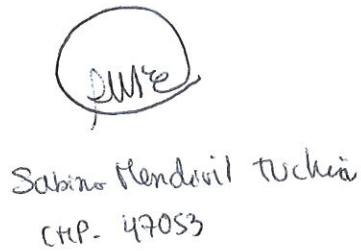 Sabino Mendivil Tuchia
CMP- 47053